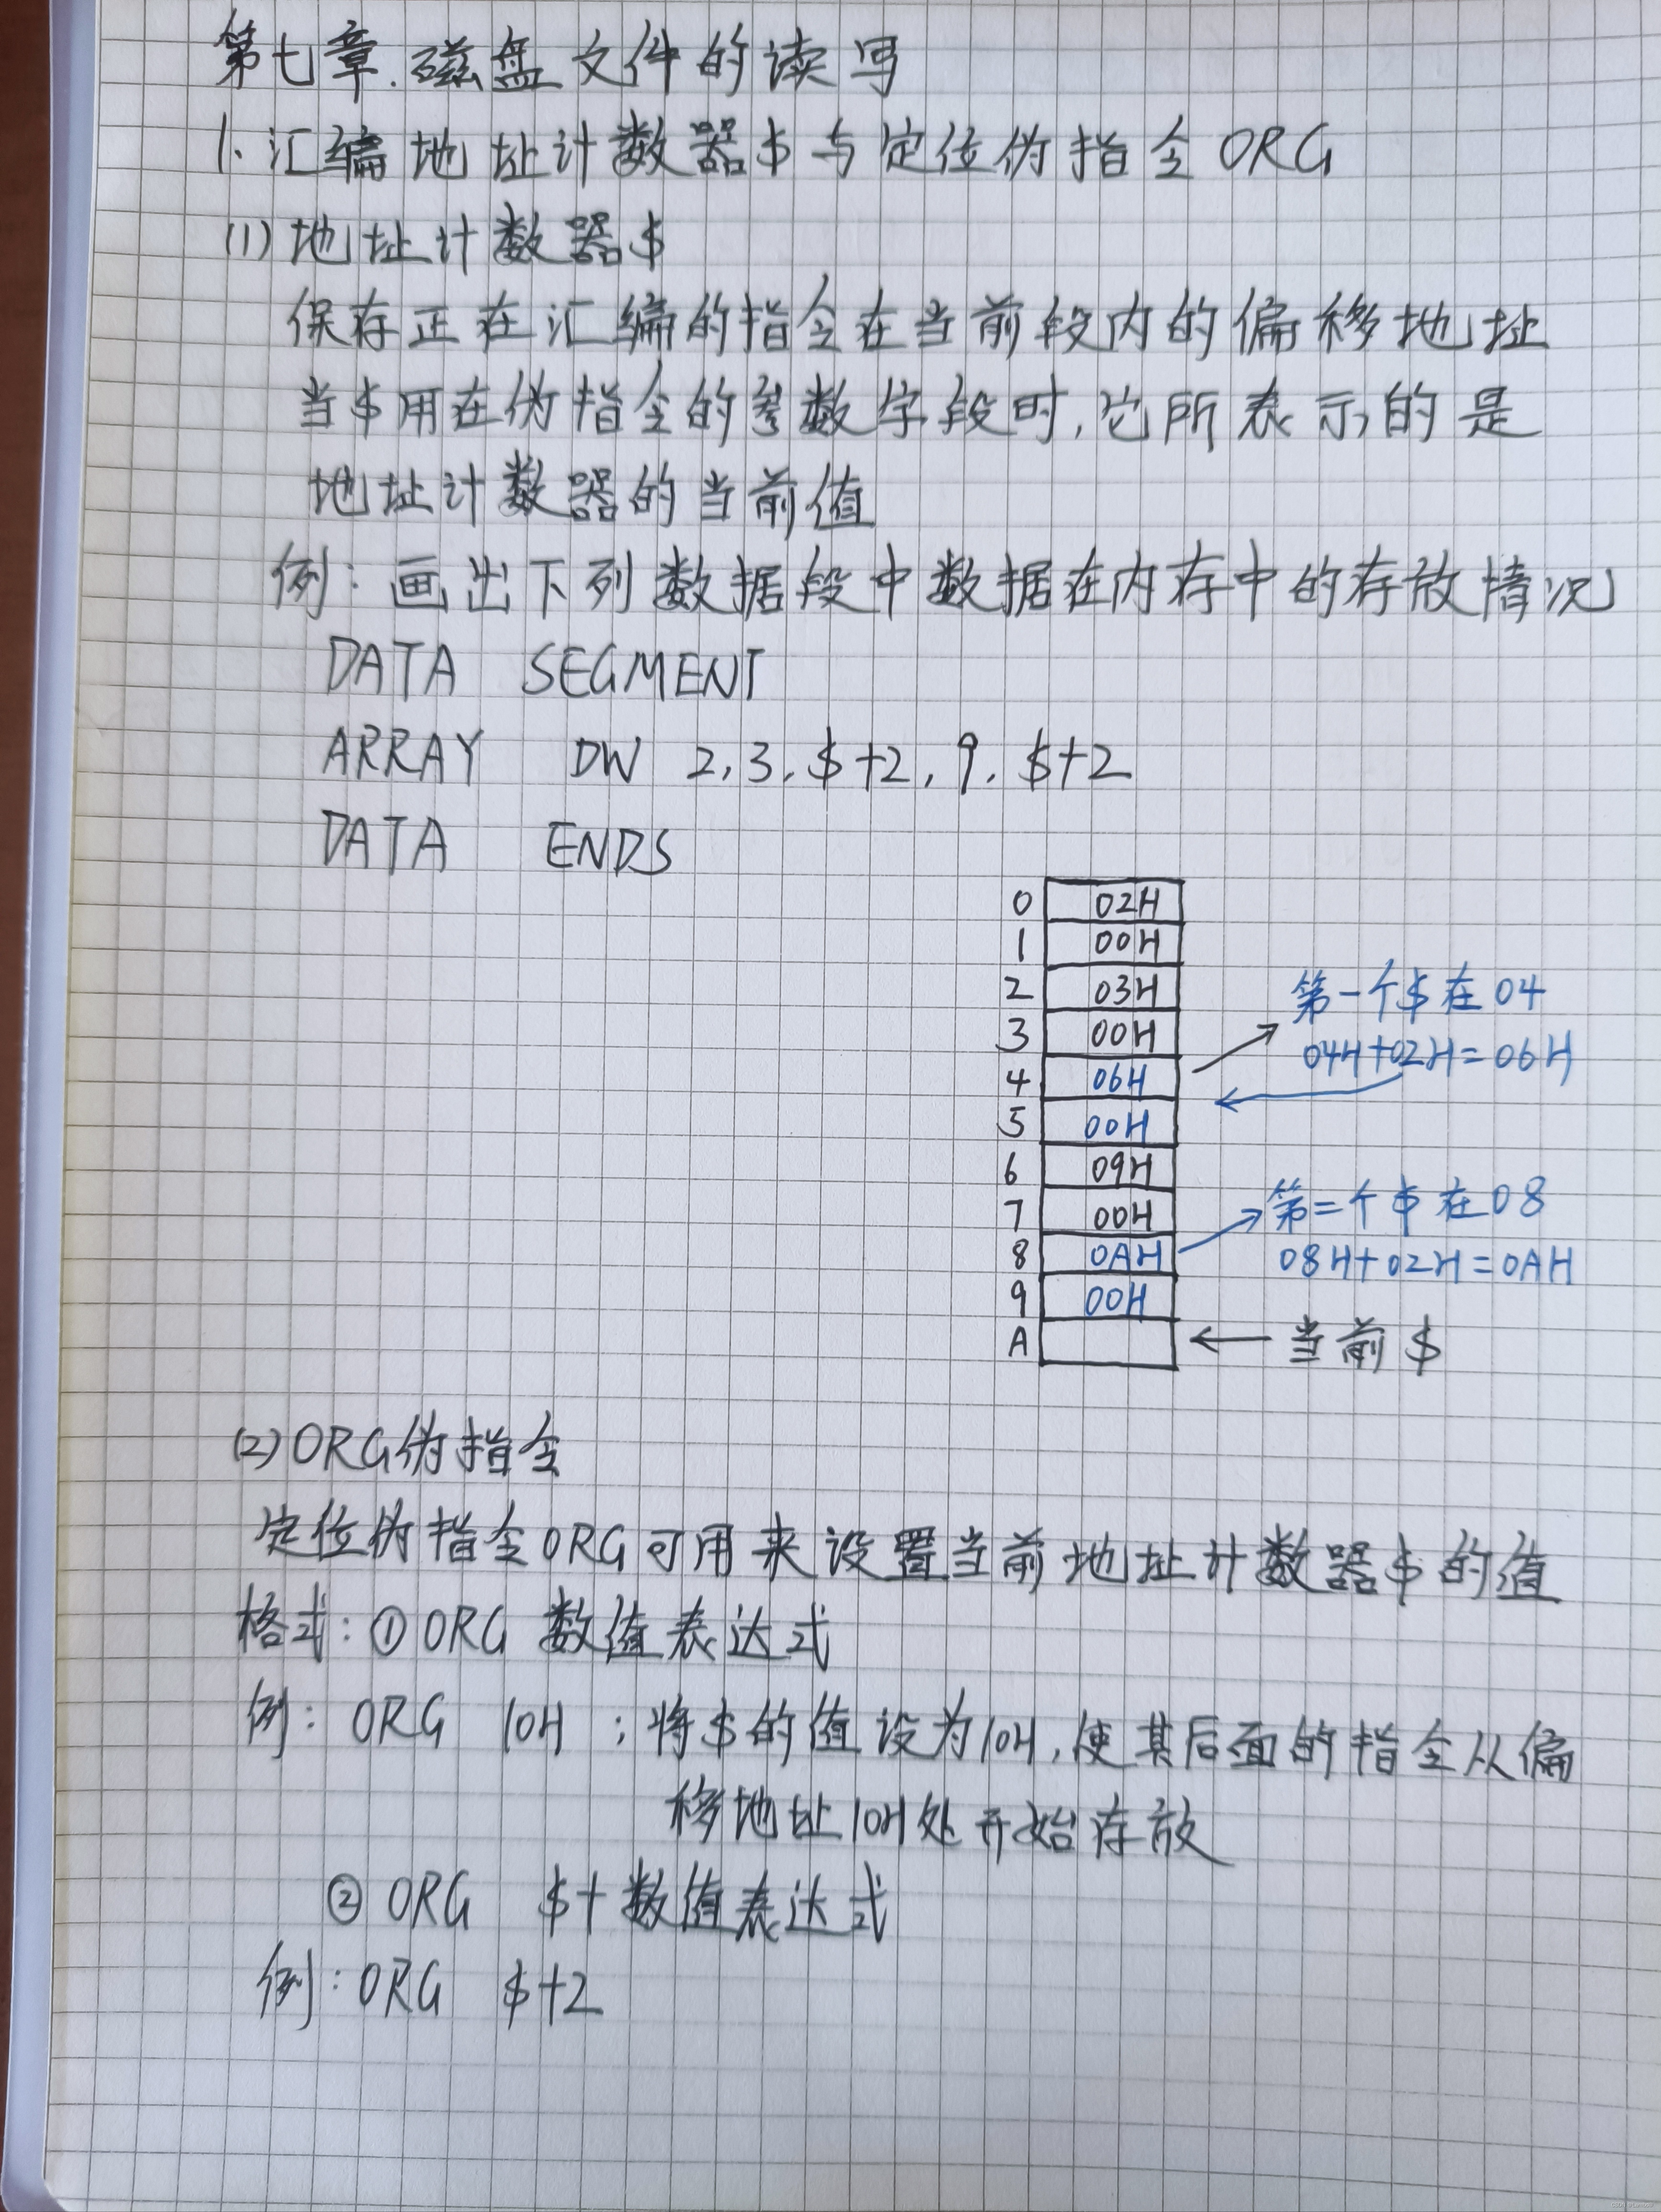 第七章.磁盘文件的读写
1.汇编地址计数器$与定位伪指令ORG
(1)地址计数器$
保存正在汇编的指令在当前段内的偏移地址
当$用在伪指令的参数字段时,它所表示的是
地址计数器的当前值
例:画出下列数据段中数据在内存中的存放情况
DATA SEGMENT
ARRAY DW 2,3,$+2,9,$+2
DATA ENDS
0 02H
1 00H
2 03H
3 00H
4 06H
5 00H
6 09H
7 00H
8 0AH
9 00H
A
第一个$在04
04H+02H=06H
第二个$在08
08H+02H=0AH
当前$
(2)ORG伪指令
定位伪指令ORG可用来设置当前地址计数器$的值
格式:①ORG 数值表达式
例: ORG 10H ;将$的值设为10H,使其后面的指令从偏
移地址10H处开始存放
② ORG $+数值表达式
例:ORG $+2